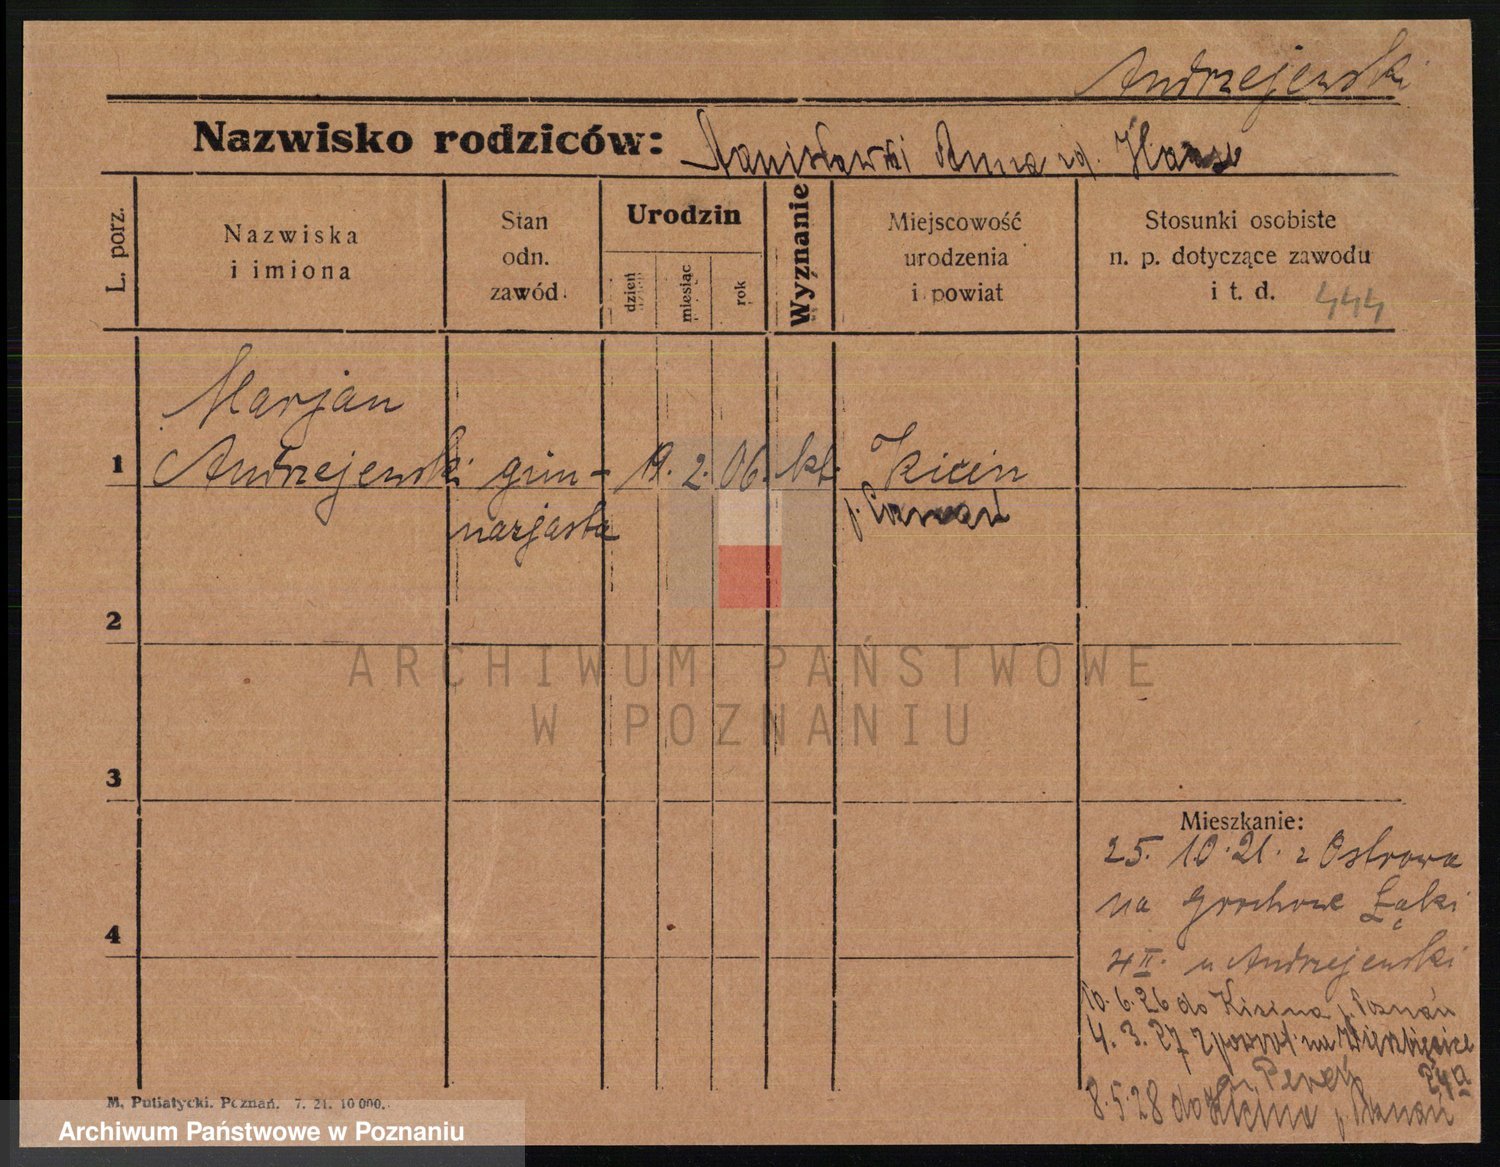 Andrzejewski
Nazwisko rodziców: Stanisławski Anna
L. porz.
Nazwiska
i imiona
Stan
odn.
zawód
Urodzin
dzień
miesiąc
rok
Wyznanie
Miejscowość
urodzenia
i powiat
Stosunki osobiste
n. p. dotyczące zawodu
i t. d.
444
Marjan
1 Andrzejewski gim- 2. 06. kt. Kicin
nazjasta p. Poznań
2
3
4
Mieszkanie:
25. 10. 21. z Ostrowa
na Grochowe Łąki
4 II. u Andrzejewski
10. 6. 26 do Kicina p. Poznań
4. 3. 27 z powrot na Wierzbięcice
24a
8. 5. 28 do Kicina p. Poznań
M. Putiatycki. Poznań. 7. 21. 10 000.
ARCHIWUM PAŃSTWOWE
W POZNANIU
Archiwum Państwowe w Poznaniu